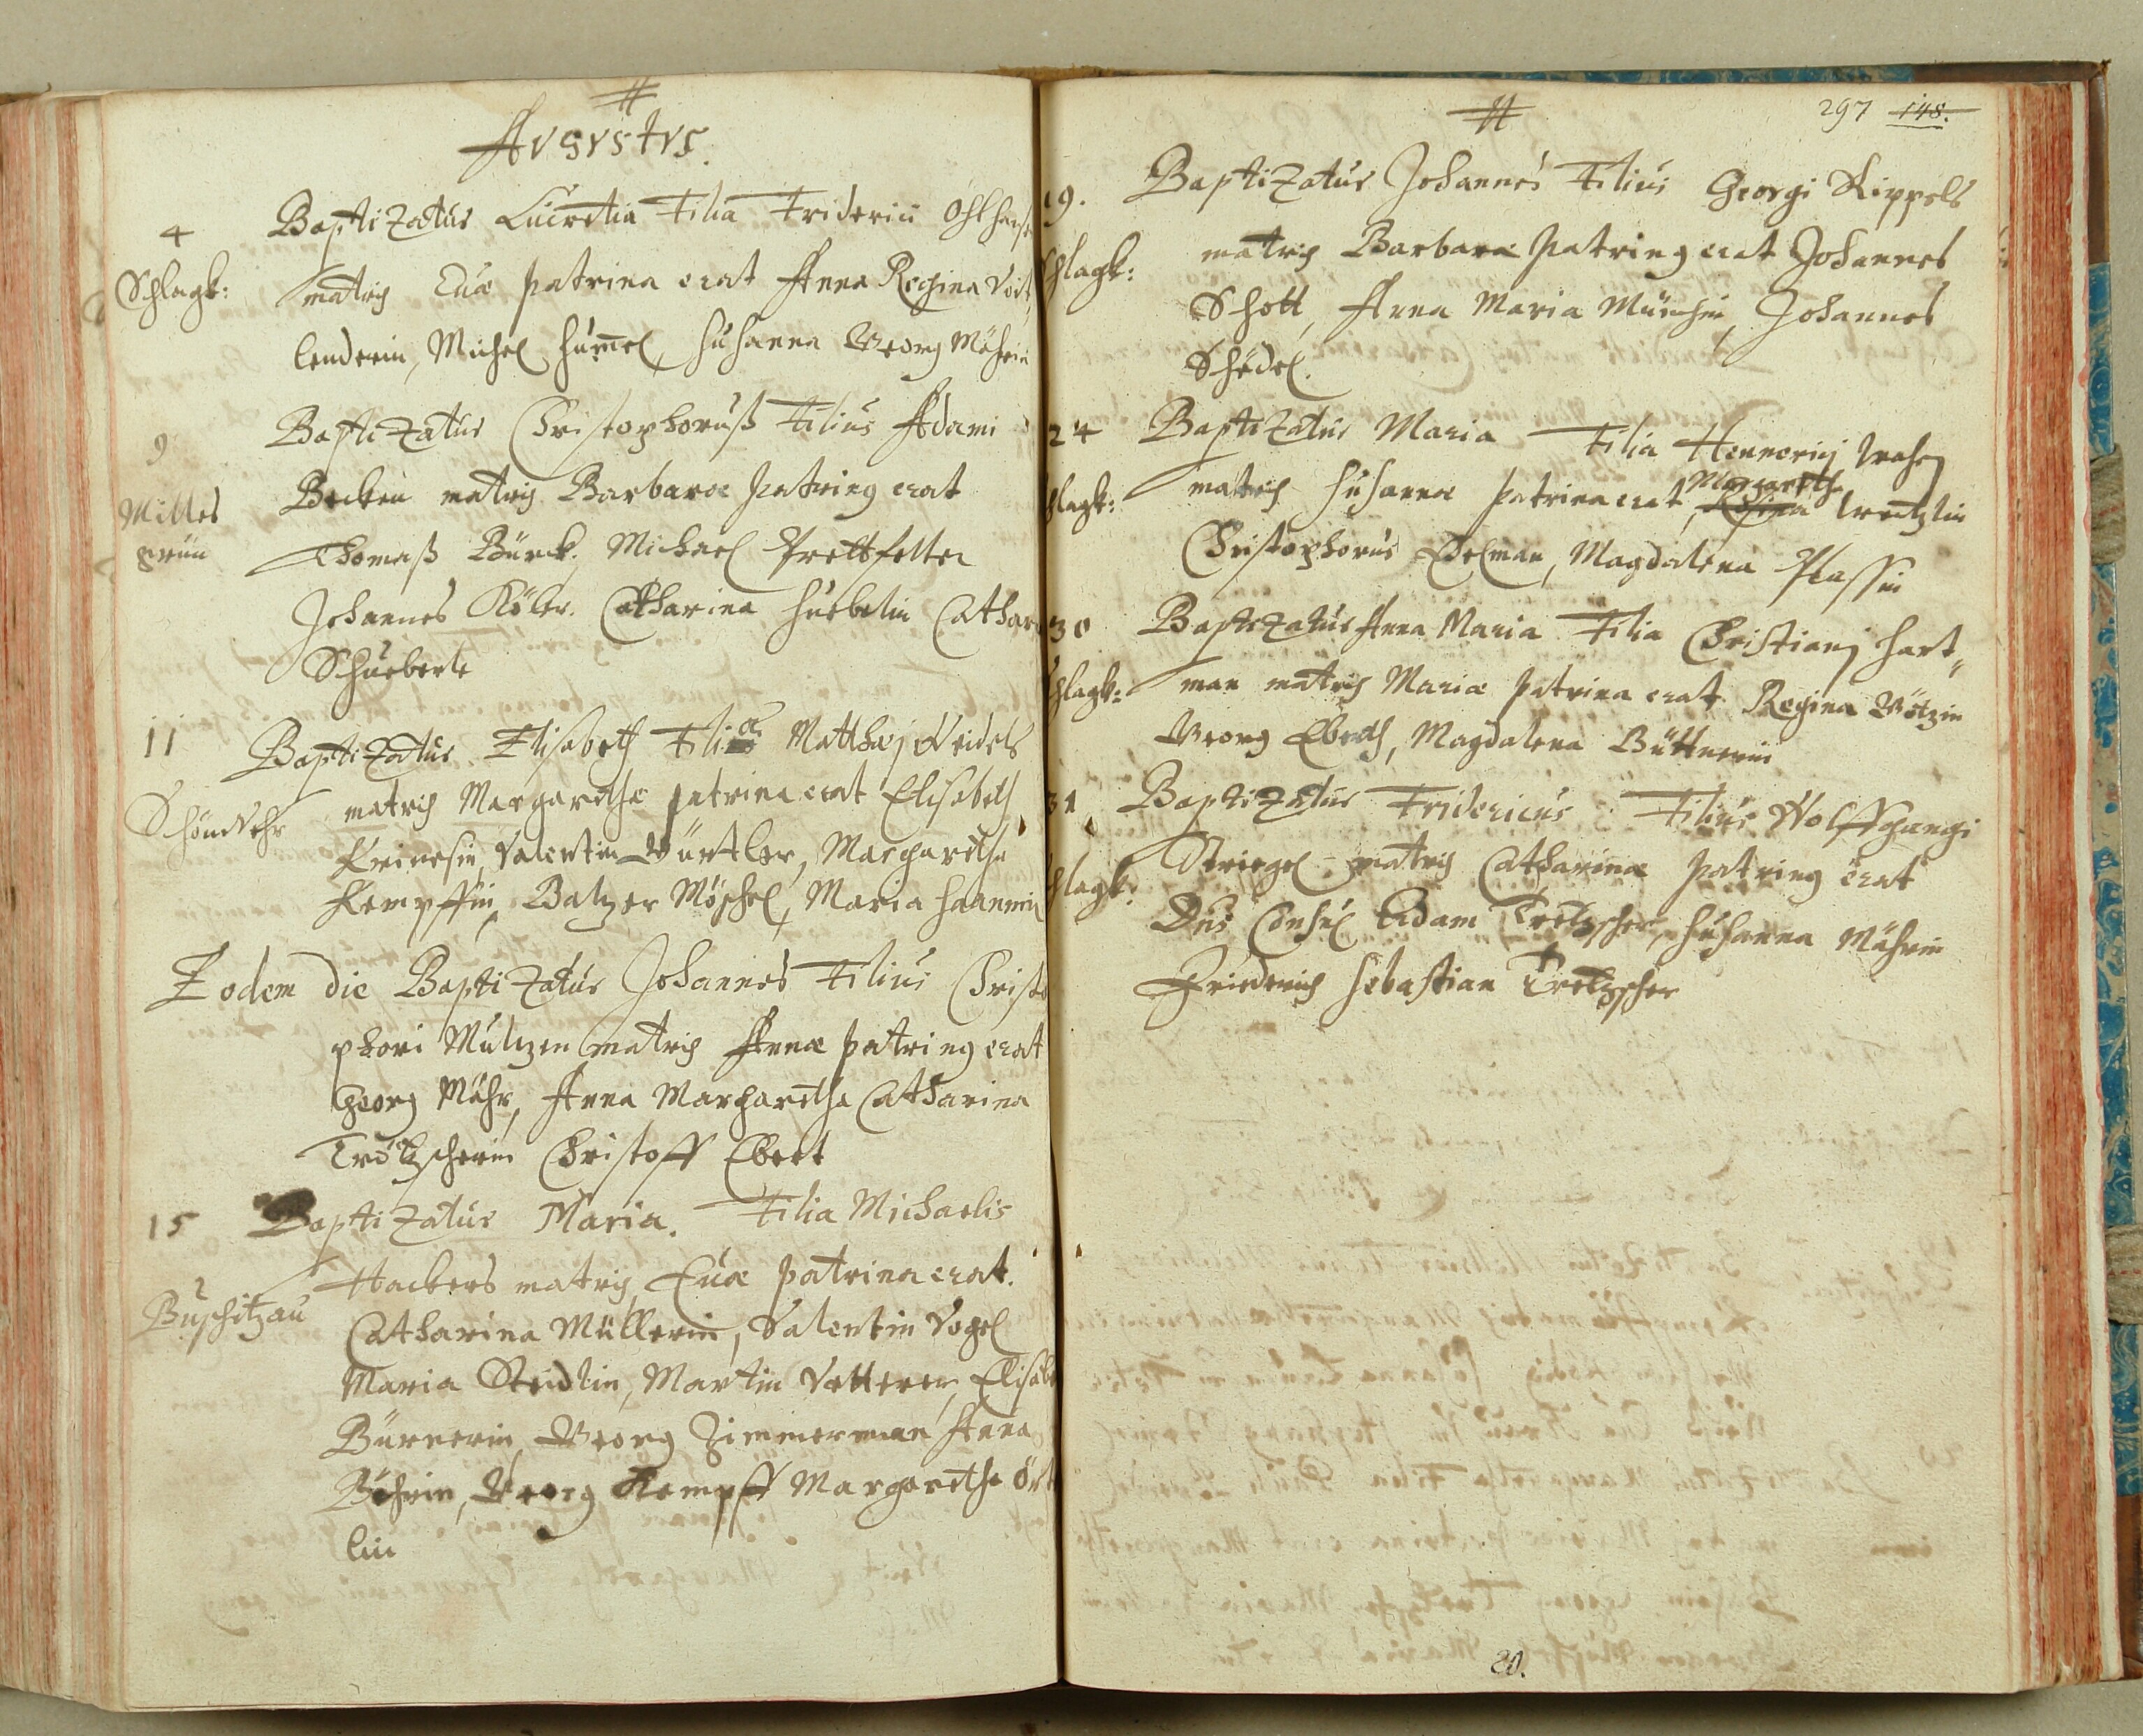 Augustus.
4
Schlagk:
Baptizatus Lucretia Filia Friderici
matris Euæ patrina erat Anna Regina Voit,
lenderin, Michel Humel, Susanna Georg Möhrin
9
Milles
grün
Baptizatus Christophoruß Filius Adami
Becken matris Barbaræ patrinus erat
Thomaß Bürck. Michael Prettfelter
Johannes Köler. Catharina Huebelin Cathar
Schueberte
11
Schönwehr
Baptizatus Elisabeth Filia Matthæj Weidels
matris Margarethæ patrina erat Elisabeth
Krinesin, Valentin Würtler, Margaretha
Kempffin, Baltzer Möschel, Maria
Eodem die Baptizatus Johannes Filius Christo
phori Multzen matris Annæ patrinus erat
Georg Mähr, Anna Margaretha Catharina
Tröltzscherin Christoff Ebert
15
Buschitzau
Baptizatus Maria. Filia Michaelis
Hackers matris Euæ patrina erat.
Catharina Müllerin, Valentin Vogel
Maria Steidlin, Martin Vetterer, Elisabe
Bürnerin, Georg Zimmerman Anna
Böhrin, Georg Kempff Margaretha Ört
lin
297 148.
19.
Schlagk:
Baptizatus Johannes Filius Georgi Kippels
matris Barbaræ patrinus erat Johannes
Schott, Anna Maria Münchin, Johannes
Schedel.
24
Schlagk:
Baptizatus Maria Filia Hennericj
matris Susannæ patrina erat, Rosina Margareth
Christophorus Edelman, Magdalena Plassin
30
Schlagk:
Baptizatus Anna Maria Filia Christianj Hart,,
man matris Mariæ patrina erat Regina Götzin
Georg Eberth, Magdalena Büttnerin
31
Schlagk:
Baptizatus Fridericus Filius Wolffgangi
Striegel matris Catharinæ patrinus erat
Dns Consul Adam Tröltzscher, Susanna Mährin
Friederich Sebastian Tröltzscher
20.